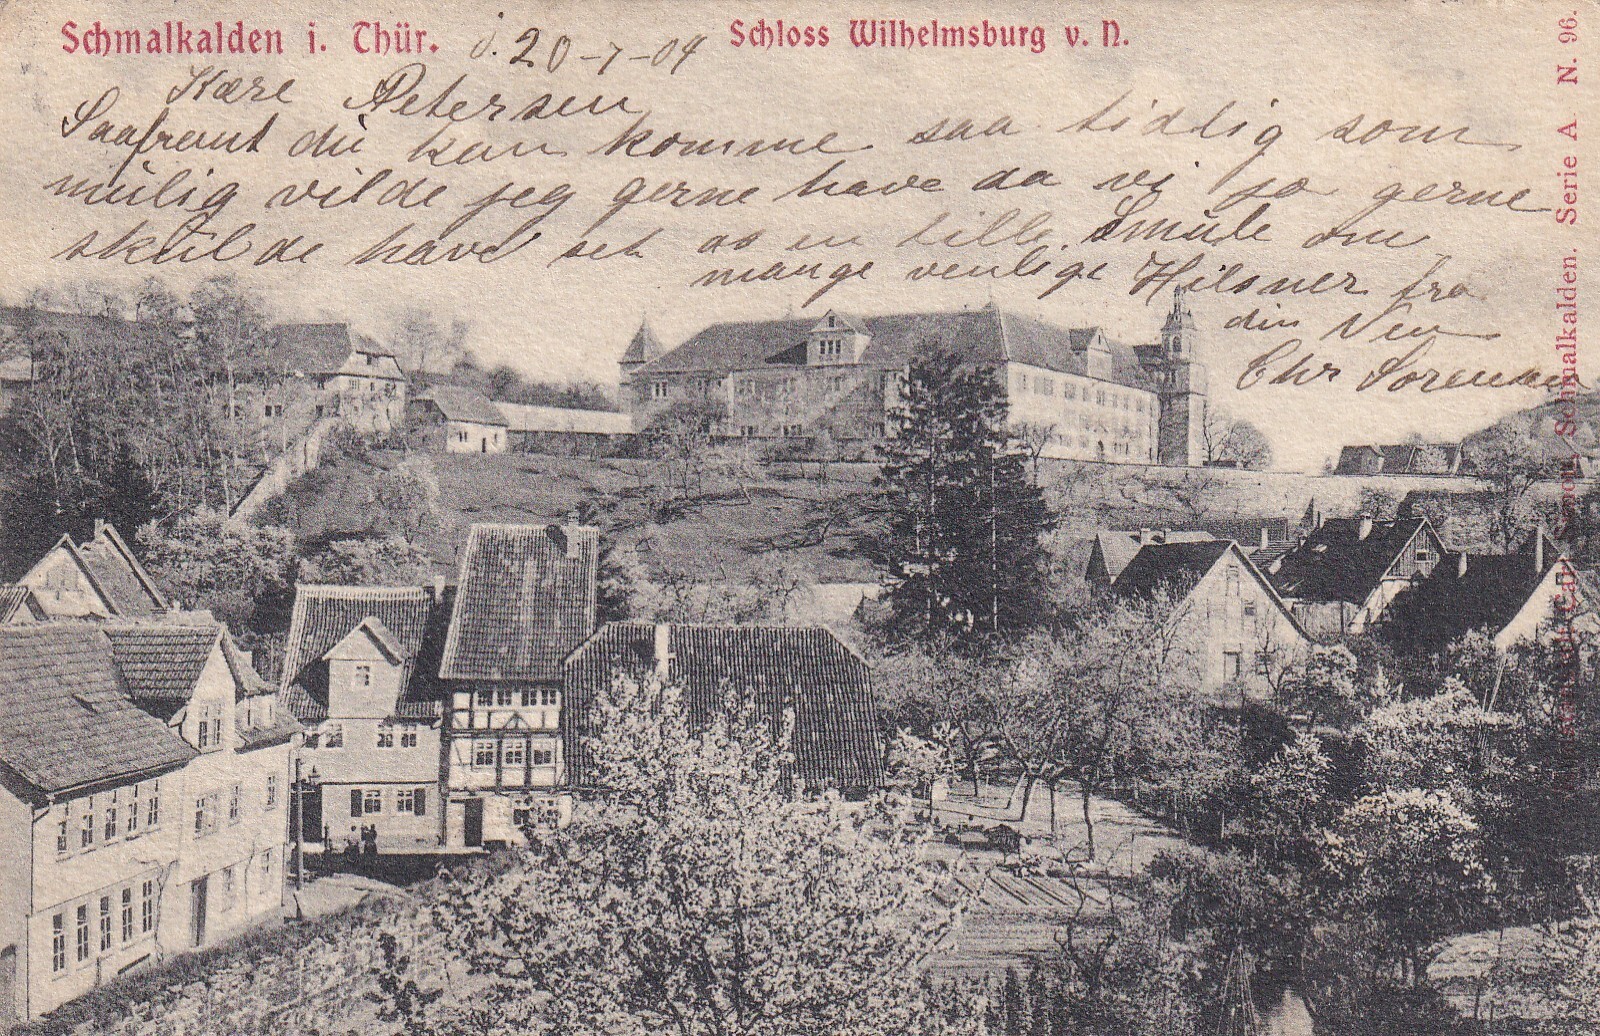 Schmalkalden i. Thür.
d. 20-7-04
Schloss Wilhelmsburg v. N.
Kære Petersen
Saafremt du kan komme saa tidlig som
mulig vilde jeg gerne have da vi jo gerne
skulde have set os en lille Smule om
mange venlige Hilsner fra
din Ven
Chr Sorensen
Schmalkalden. Serie A N. 96.